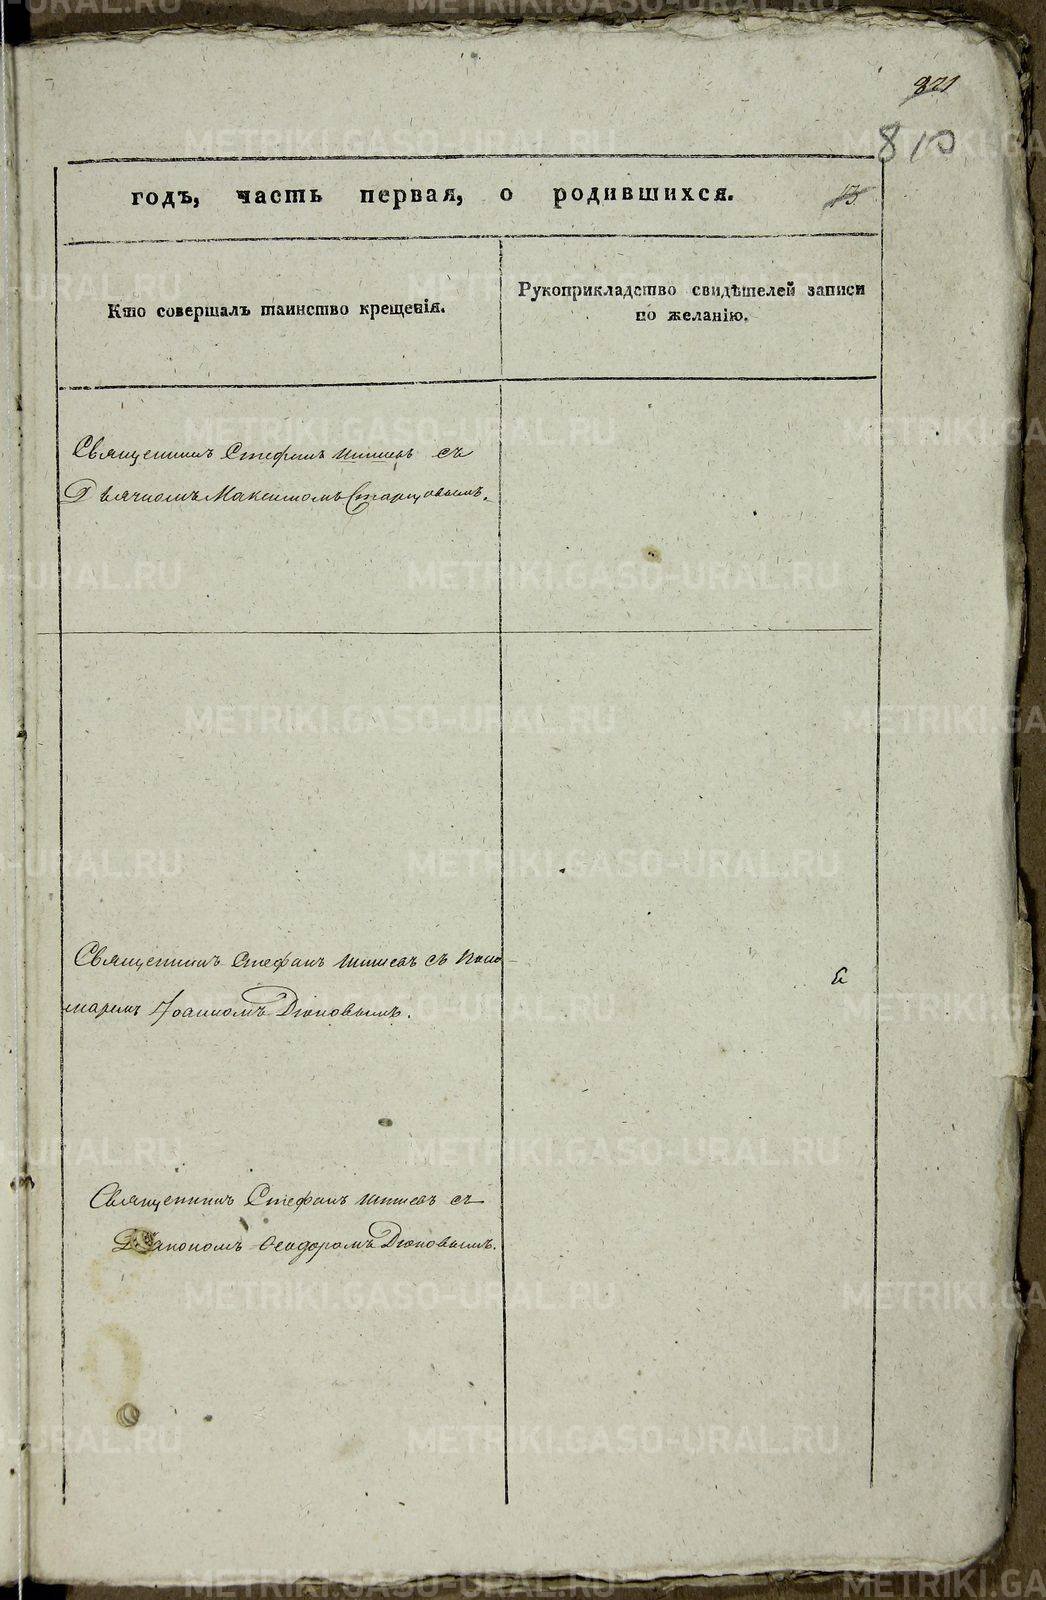 821
810
годъ, часть первая, о родившихся.
13
Кто совершалъ таинство крещенія.
Рукоприкладство свидѣтелей записи
по желанію.
Священникъ Стефанъ съ
Дьячкомъ Максимомъ Старцовымъ.
Священникъ Стефанъ съ Поно-
маремъ Іоанномъ Дюковымъ.
Священникъ Стефанъ съ
Діакономъ Ѳеодоромъ Дюковымъ.
METRIKI.GASO-URAL.RU